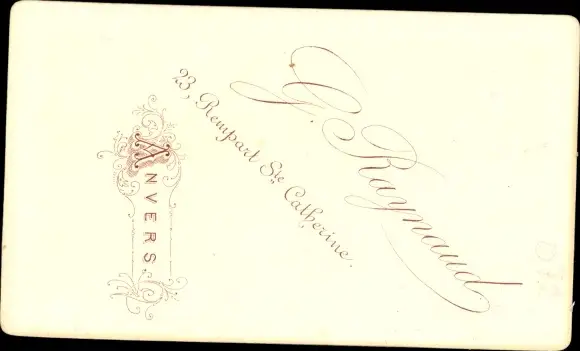 G. Raynaud
23, Rempart Ste Catherine.
ANVERS